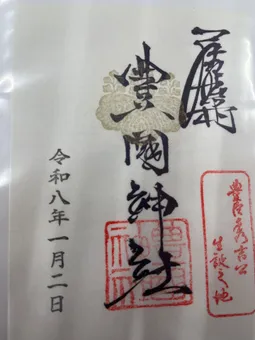 奉拝
豐國神社
豊臣秀吉公
生誕之地
令和八年一月二日